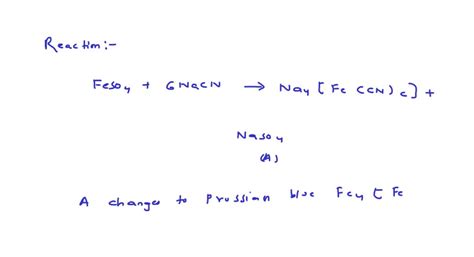 Reaction:-
FeSO4 + 6NaCN → Na4 [Fe (CN)6] +
NaSO4
(A)
A changes to Prussian blue Fe4 [Fe